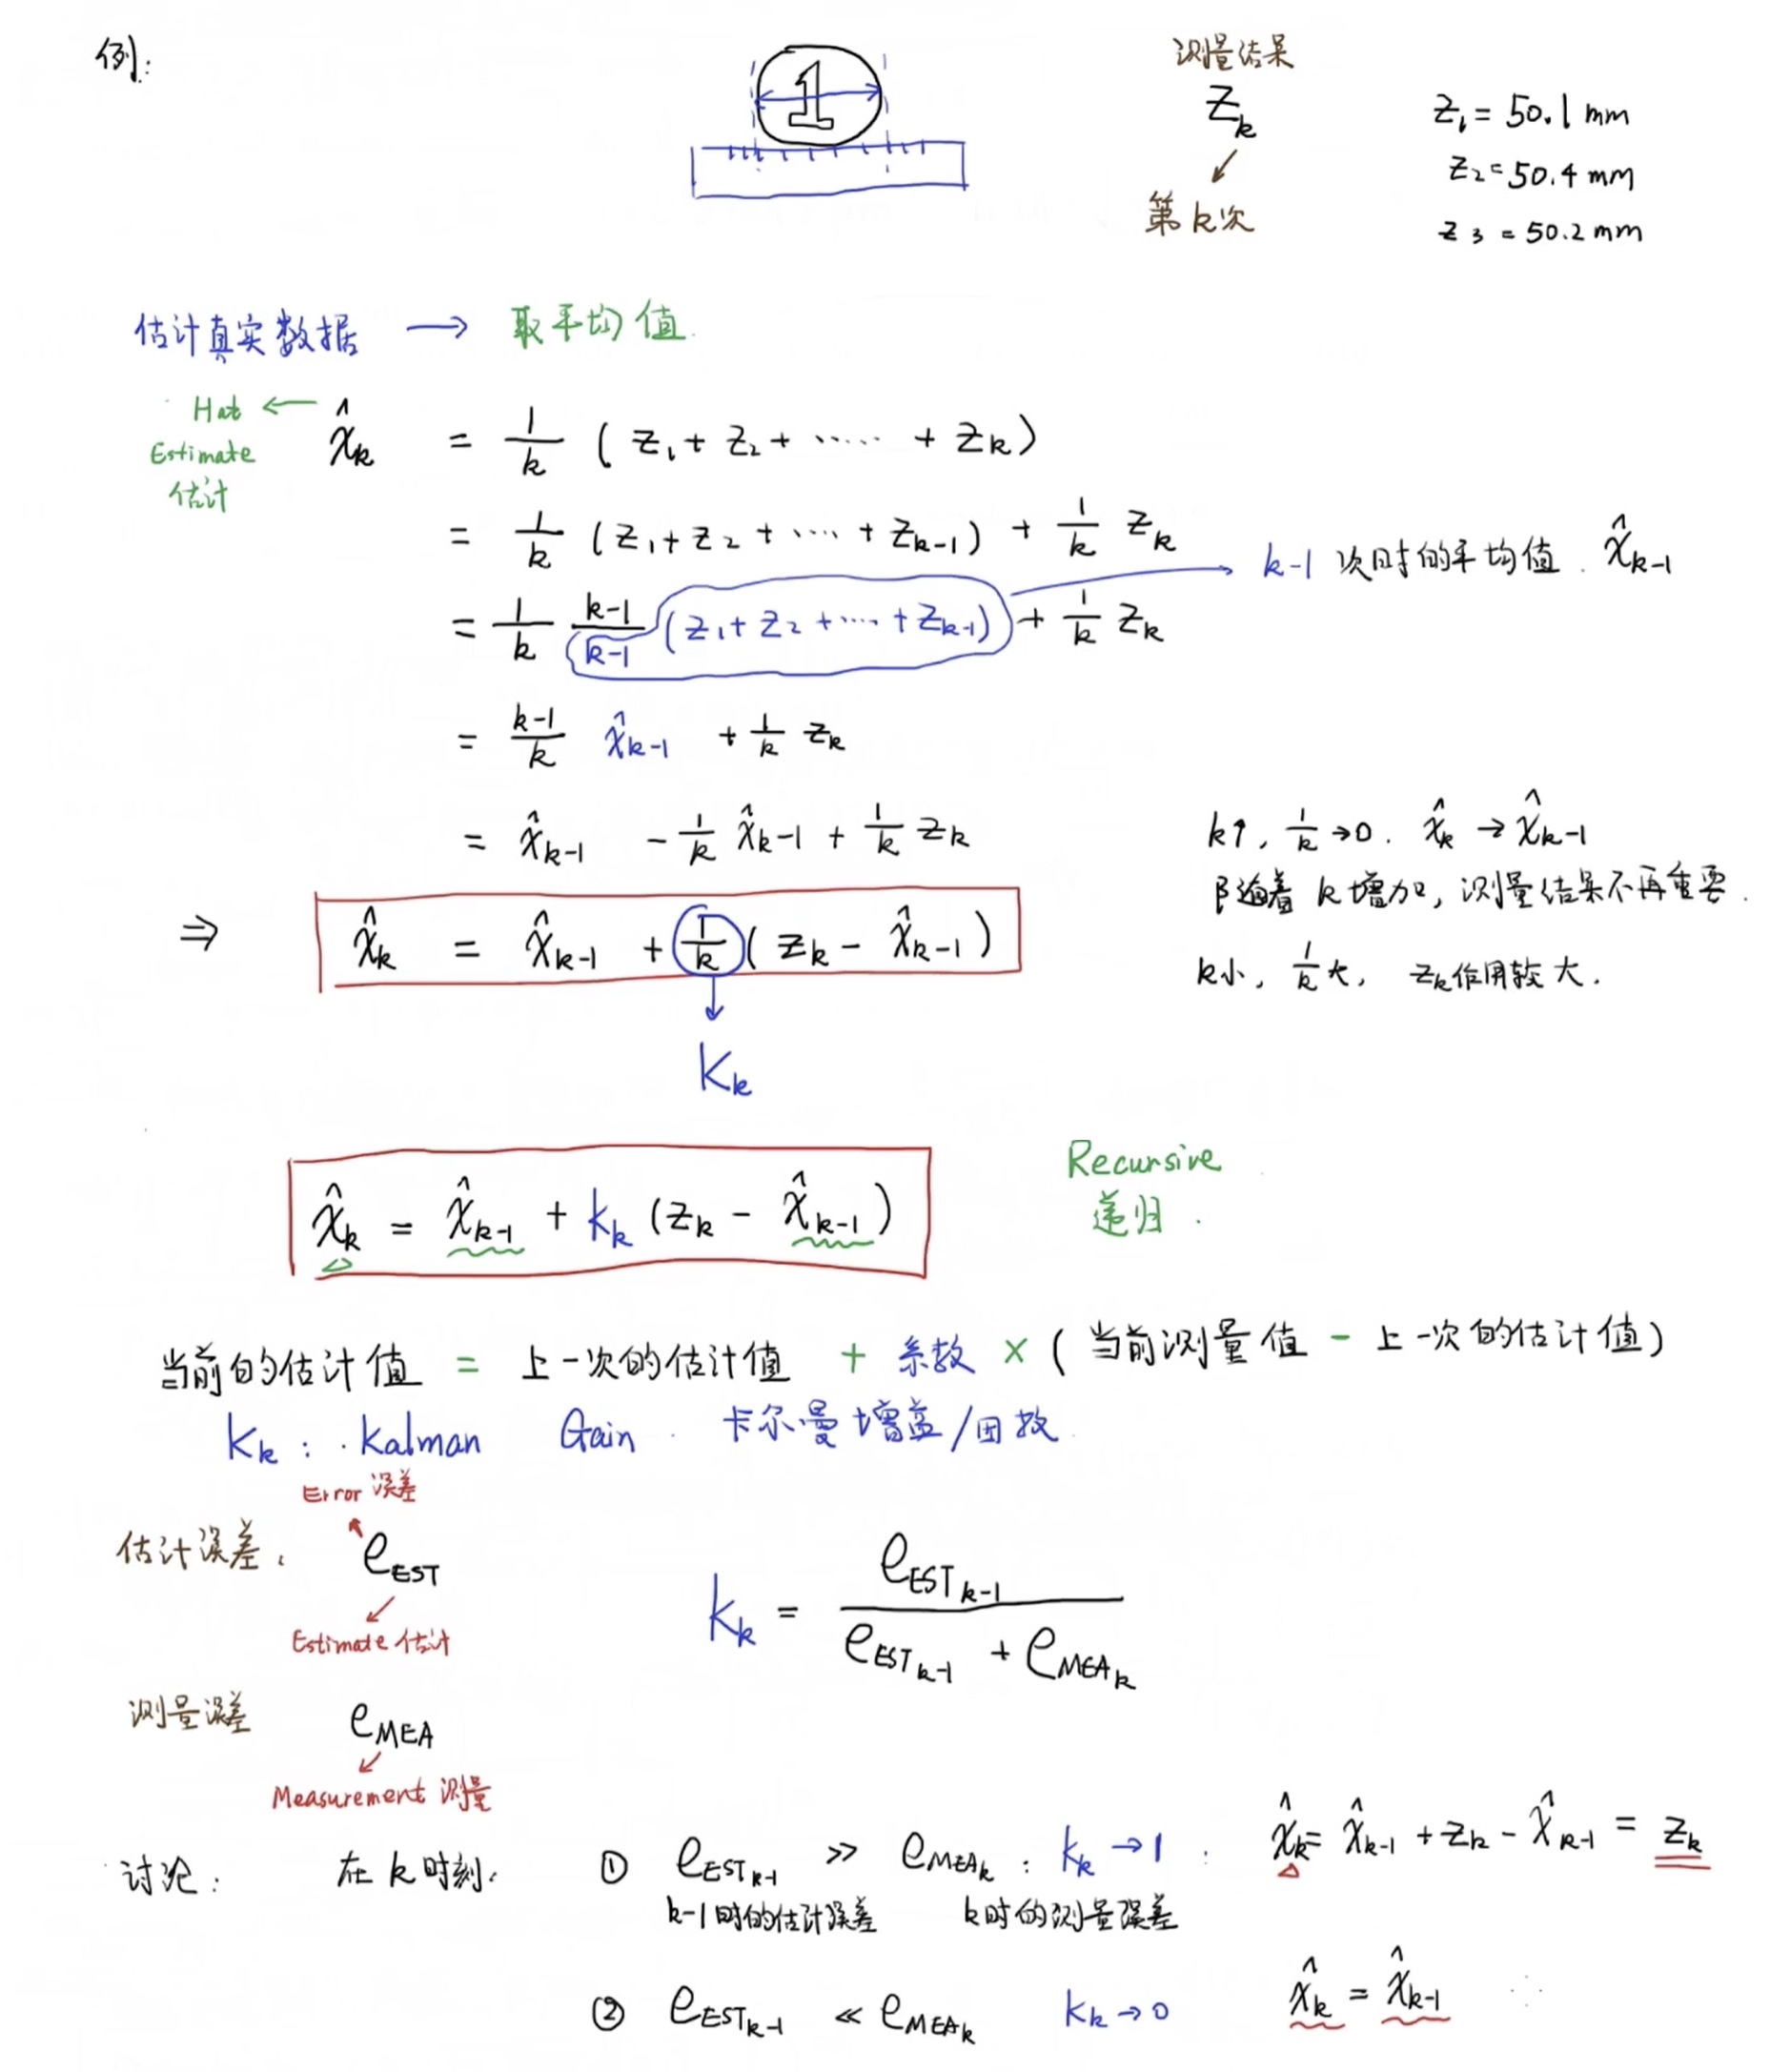 例:
1
测量结果
Z_k
第k次
Z_1 = 50.1 mm
Z_2 = 50.4 mm
Z_3 = 50.2 mm
估计真实数据 → 取平均值
Hat ← x̂_k = 1/k ( Z_1 + Z_2 + ····· + Z_k )
Estimate
估计
= 1/k ( Z_1 + Z_2 + ···· + Z_{k-1} ) + 1/k Z_k
= 1/k (k-1)/(k-1) ( Z_1 + Z_2 + ···· + Z_{k-1} ) + 1/k Z_k → k-1 次时的平均值. x̂_{k-1}
= (k-1)/k x̂_{k-1} + 1/k Z_k
= x̂_{k-1} - 1/k x̂_{k-1} + 1/k Z_k
⇒ x̂_k = x̂_{k-1} + 1/k ( Z_k - x̂_{k-1} )
K_k
k↑, 1/k → 0. x̂_k → x̂_{k-1}
随着 k 增加, 测量结果不再重要.
k小, 1/k 大, Z_k 作用较大.
x̂_k = x̂_{k-1} + K_k ( Z_k - x̂_{k-1} )
Recursive
递归.
当前的估计值 = 上一次的估计值 + 系数 × ( 当前测量值 - 上一次的估计值 )
K_k : Kalman Gain 卡尔曼增益/因数
Error 误差
估计误差: e_EST
Estimate 估计
K_k = e_{EST_{k-1}} / ( e_{EST_{k-1}} + e_{MEA_k} )
测量误差 e_MEA
Measurement 测量
讨论: 在 k 时刻. ① e_{EST_{k-1}} ≫ e_{MEA_k} : K_k → 1 : x̂_k = x̂_{k-1} + Z_k - x̂_{k-1} = Z_k
k-1时的估计误差 k时的测量误差
② e_{EST_{k-1}} ≪ e_{MEA_k} K_k → 0 x̂_k = x̂_{k-1}